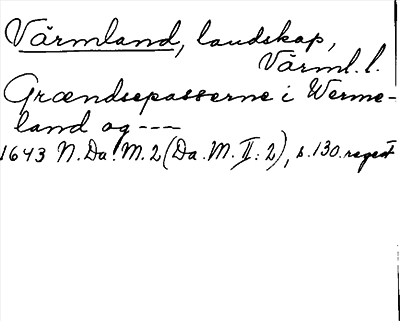 Värmland, landskap,
Värml. l.
Grændsepasserne i Werme-
land og ---
1643 N. Da. M. 2 (Da. M. II: 2), s. 130. regest